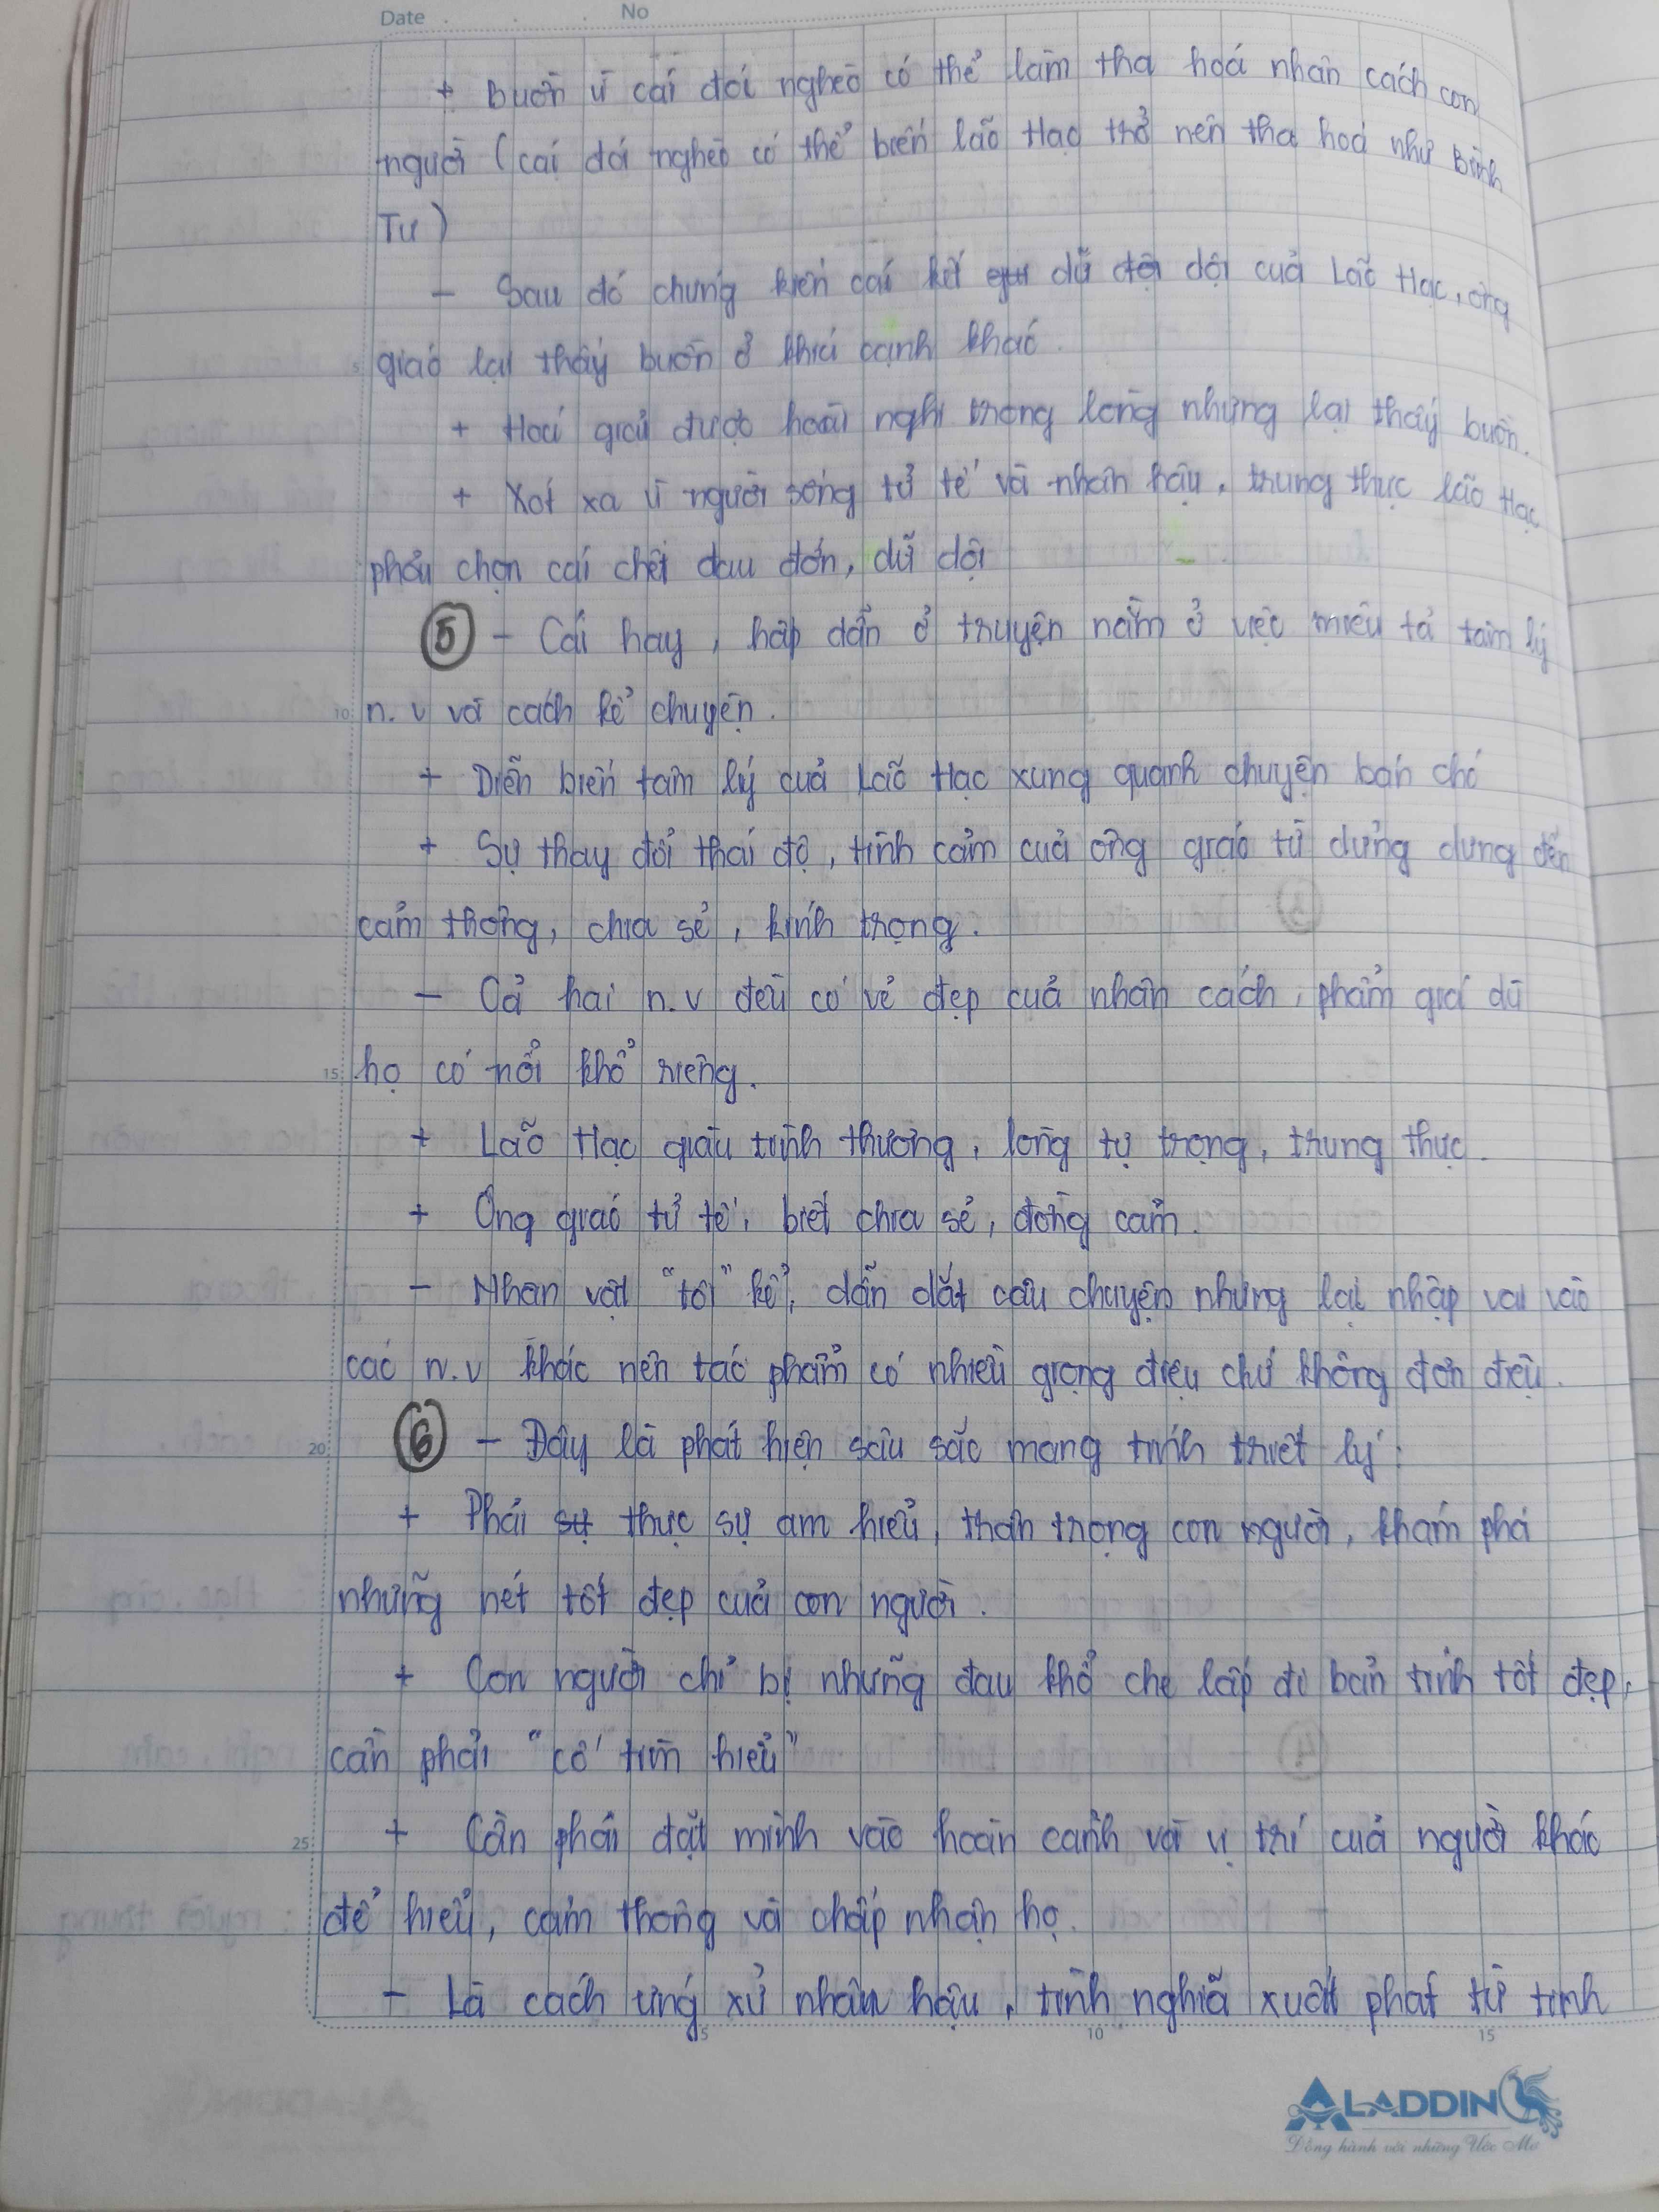 Date No
+ Buồn vì cái đói nghèo có thể làm tha hoá nhân cách con
người (cái đói nghèo có thể biến lão Hạc trở nên tha hoá như Binh
Tư)
- Sau đó chứng kiến cái kết dữ dội của Lão Hạc, ông
giáo lại thấy buồn ở khía cạnh khác.
+ Hoá giải được hoài nghi trong lòng nhưng lại thấy buồn.
+ Xót xa vì người sống tử tế và nhân hậu, trung thực lão Hạc
phải chọn cái chết đau đớn, dữ dội
5 - Cái hay, hấp dẫn ở truyện nằm ở việc miêu tả tâm lý
n.v và cách kể chuyện.
+ Diễn biến tâm lý của Lão Hạc xung quanh chuyện bán chó
+ Sự thay đổi thái độ, tình cảm của ông giáo từ dửng dưng đến
cảm thông, chia sẻ, kính trọng.
- Cả hai n.v đều có vẻ đẹp của nhân cách, phẩm giá dù
họ có nỗi khổ riêng.
+ Lão Hạc giàu tình thương, lòng tự trọng, trung thực.
+ Ông giáo tử tế, biết chia sẻ, đồng cảm.
- Nhân vật "tôi" kể, dẫn dắt câu chuyện nhưng lại nhập vai vào
các n.v khác nên tác phẩm có nhiều giọng điệu chứ không đơn điệu.
6 - Đây là phát hiện sâu sắc mang tính triết lý:
+ Phải thực sự am hiểu, thân trọng con người, khám phá
những nét tốt đẹp của con người.
+ Con người chỉ bị những đau khổ che lấp đi bản tính tốt đẹp,
cần phải "cố tìm hiểu"
+ Cần phải đặt mình vào hoàn cảnh và vị trí của người khác
để hiểu, cảm thông và chấp nhận họ.
- Là cách ứng xử nhân hậu, tình nghĩa xuất phát từ tình
5 10 15
ALADDIN
Đồng hành với những Ước Mơ